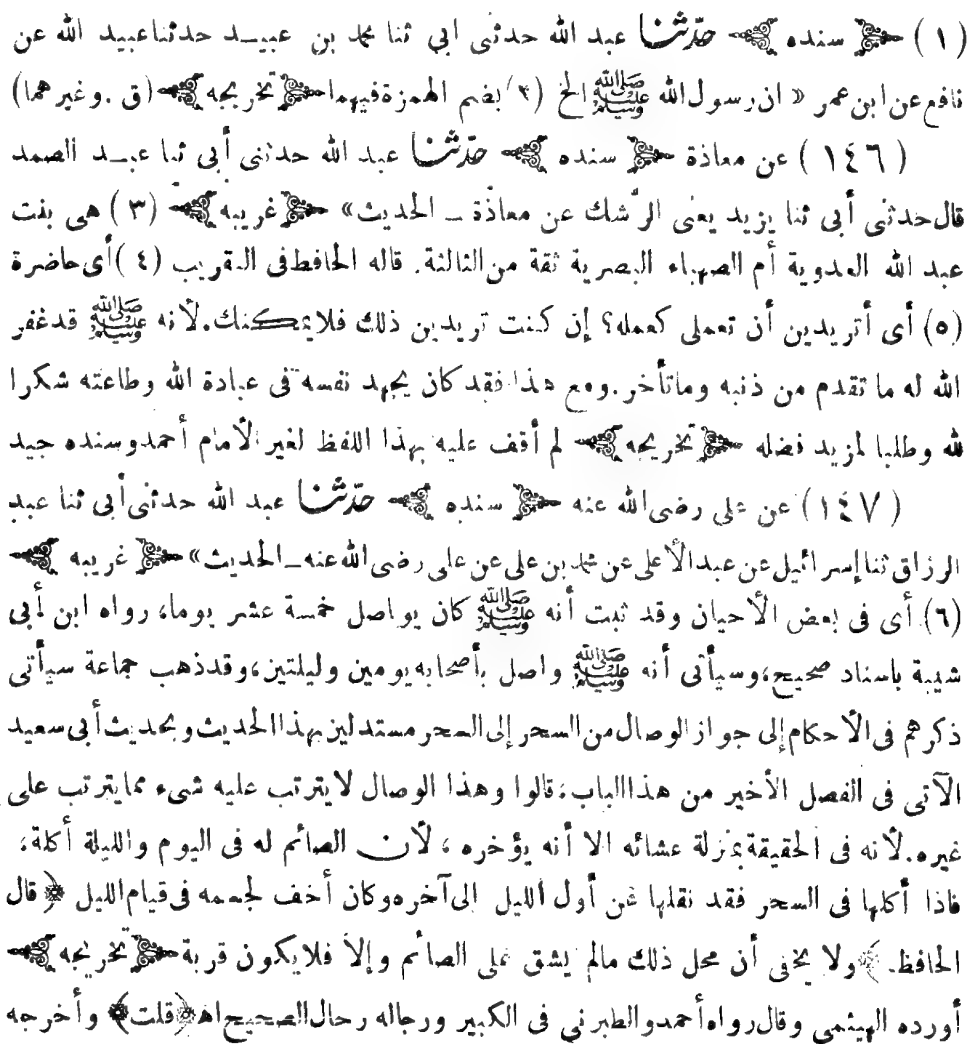 (١) ﴿ سنده ﴾ حدّثنا عبد الله حدثنى ابى ثنا محمد بن عبيد حدثنا عبيد الله عن
نافع عن ابن عمر « ان رسول الله ﷺ الخ (٢) بضم الهمزة فيهما ﴿ تخريجه ﴾ (ق . وغيرهما)
(١٤٦) عن معاذة ﴿ سنده ﴾ حدّثنا عبد الله حدثنى أبى ثنا عبد الصمد
قال حدثنى أبى ثنا يزيد يعنى الرّشك عن معاذة ـ الحديث» ﴿ غريبه ﴾ (٣) هى بنت
عبد الله العدوية أم الصهباء البصرية ثقة من الثالثة. قاله الحافظ فى التقريب (٤) أى حاضرة
(٥) أى أتريدين أن تعملى كعمله؟ إن كنت تريدين ذلك فلا يمكنك. لأنه ﷺ قد غفر
الله له ما تقدم من ذنبه وما تأخر. ومع هذا فقد كان يجهد نفسه فى عبادة الله وطاعته شكرا
لله وطلبا لمزيد فضله ﴿ تخريجه ﴾ لم أقف عليه بهذا اللفظ لغير الأمام أحمد وسنده جيد
(١٤٧) عن على رضى الله عنه ﴿ سنده ﴾ حدّثنا عبد الله حدثنى أبى ثنا عبد
الرزاق ثنا إسرائيل عن عبد الأعلى عن محمد بن على عن على رضى الله عنه ـ الحديث» ﴿ غريبه ﴾
(٦) أى فى بعض الأحيان وقد ثبت أنه ﷺ كان يواصل خمسة عشر يوما، رواه ابن أبى
شيبة باسناد صحيح، وسيأتى أنه ﷺ واصل بأصحابه يومين وليلتين، وقد ذهب جماعة سيأتى
ذكرهم فى الأحكام إلى جواز الوصال من السحر إلى السحر مستدلين بهذا الحديث وبحديث أبى سعيد
الآتى فى الفصل الأخير من هذا الباب، قالوا وهذا الوصال لا يترتب عليه شىء مما يترتب على
غيره. لأنه فى الحقيقة بمنزلة عشائه الا أنه يؤخره ، لأن الصائم له فى اليوم والليلة أكلة،
فاذا أكلها فى السحر فقد نقلها من أول الليل إلى آخره وكان أخف لجسمه فى قيام الليل ﴿ قال
الحافظ ﴾ ولا يخفى أن محل ذلك مالم يشق على الصائم وإلا فلا يكون قربة ﴿ تخريجه ﴾
أورده الهيثمى وقال رواه أحمد والطبرنى فى الكبير ورجاله رجال الصحيح اهـ ﴿قلت﴾ وأخرجه